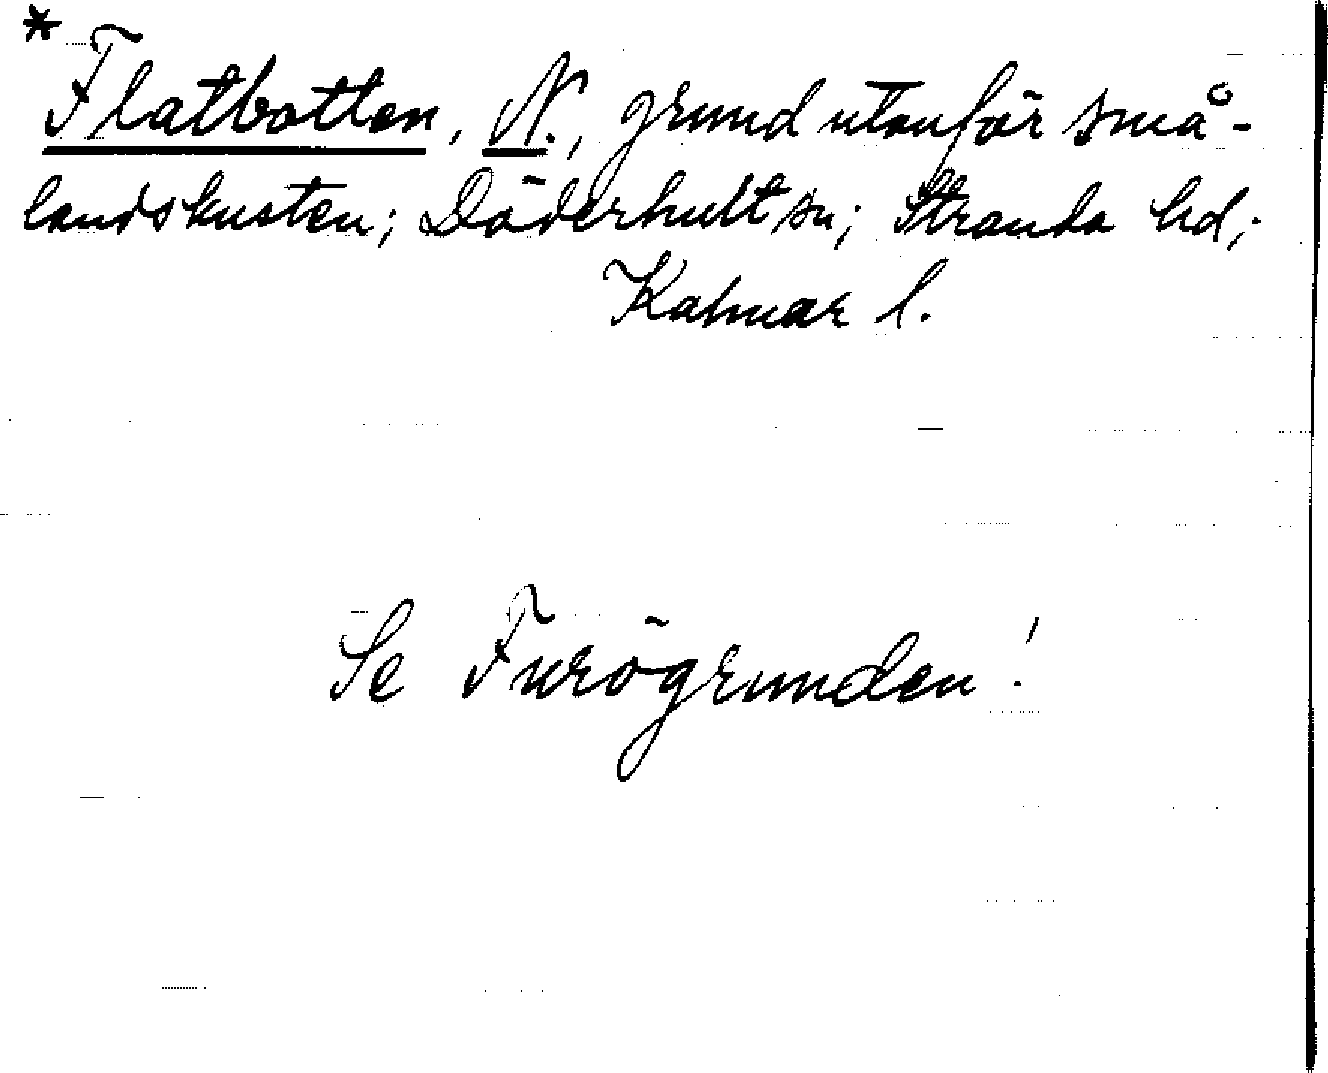 * Flatbotten, N., grund utanför små-
landskusten; Döderhult sn; Stranda hd;
Kalmar l.
Se Furögrunden!